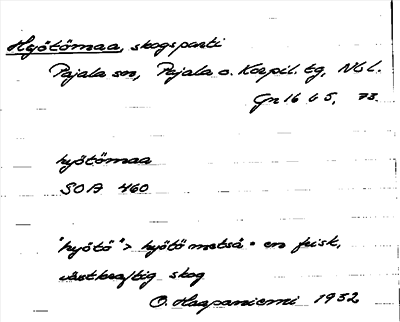 Hyötömaa, skogsparti
Pajala sn, Pajala o. Korpil. tg, Nbl.
Gn 16 b 5, 73.
hyötömaa
SOA 460
"hyötö" > hyötömetsä = en frisk,
växtkraftig skog
O. Haapaniemi 1932